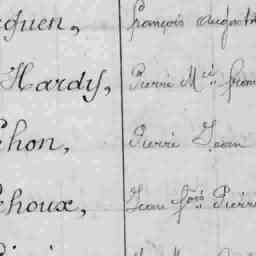 guen, François August
Hardy, Pierre Mie from
ehon, Pierre Jean
ehoux, Jean fois Pierre